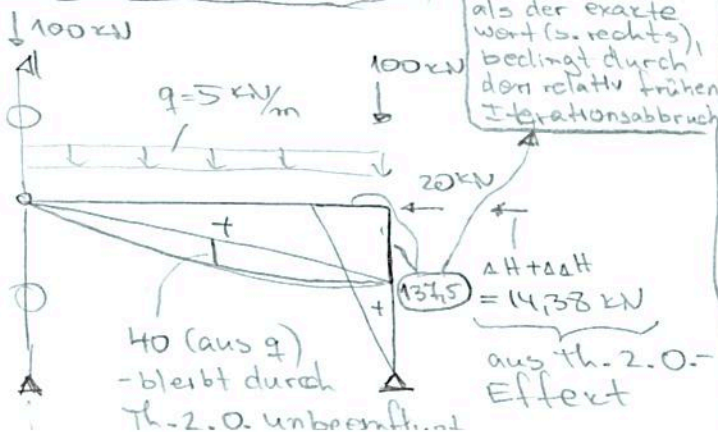 als der exakte
wert (s. rechts),
bedingt durch
den relativ frühen
Iterationsabbruch
100 kN
100 kN
q=5 kN/m
20 kN
137,5
ΔH + ΔΔH
= 14,38 kN
aus Th. 2. O.-
Effekt
40 (aus q)
-bleibt durch
Th. 2. O. unbeeinflusst
+
+